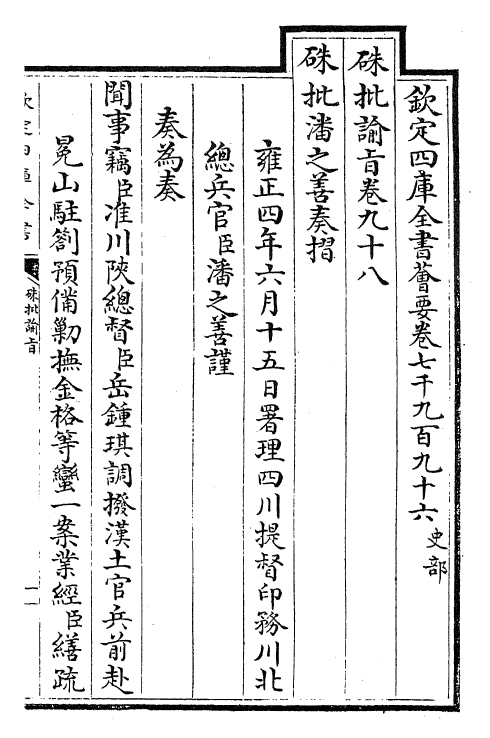 欽定四庫全書薈要卷七千九百九十六 史部
硃批諭旨卷九十八
硃批潘之善奏摺
雍正四年六月十五日署理四川提督印務川北
總兵官臣潘之善謹
奏為奏
聞事竊臣准川陝總督臣岳鍾琪調撥漢土官兵前赴
冕山駐劄預備勦撫金格等蠻一案業經臣繕疏
硃批諭旨
一